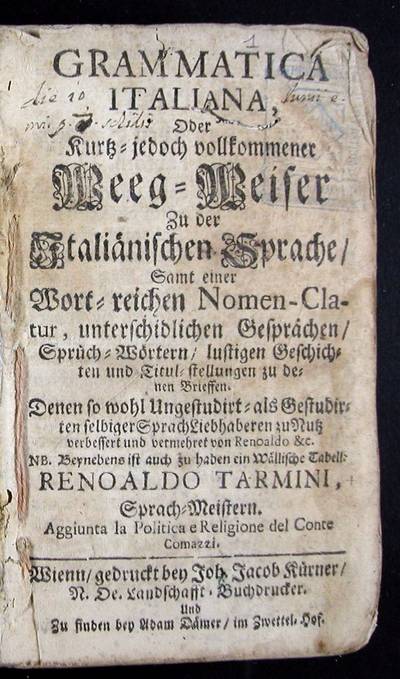 GRAMMATICA
ITALIANA,
die 10
Oder
Kurtz-jedoch vollkommener
Weeg-Weiser
Zu der
Italiänischen Sprache/
Samt einer
Wort-reichen Nomen-Cla-
tur, unterschidlichen Gesprächen/
Sprüch-Wörtern/ lustigen Geschich-
ten und Titul-stellungen zu de-
nen Brieffen.
Denen so wohl Ungestudirt-als Gestudir-
ten selbiger Sprach Liebhaberen zu Nutz
verbessert und vermehret von Renoaldo &c.
NB. Beynebens ist auch zu haben ein Wällische Tabell.
RENOALDO TARMINI,
Sprach-Meistern.
Aggiunta la Politica e Religione del Conte
Comazzi.
Wienn/ gedruckt bey Joh. Jacob Kürner/
N. Oe. Landschafft-Buchdrucker.
Und
Zu finden bey Adam Dämer/ im Zwettel-Hof.